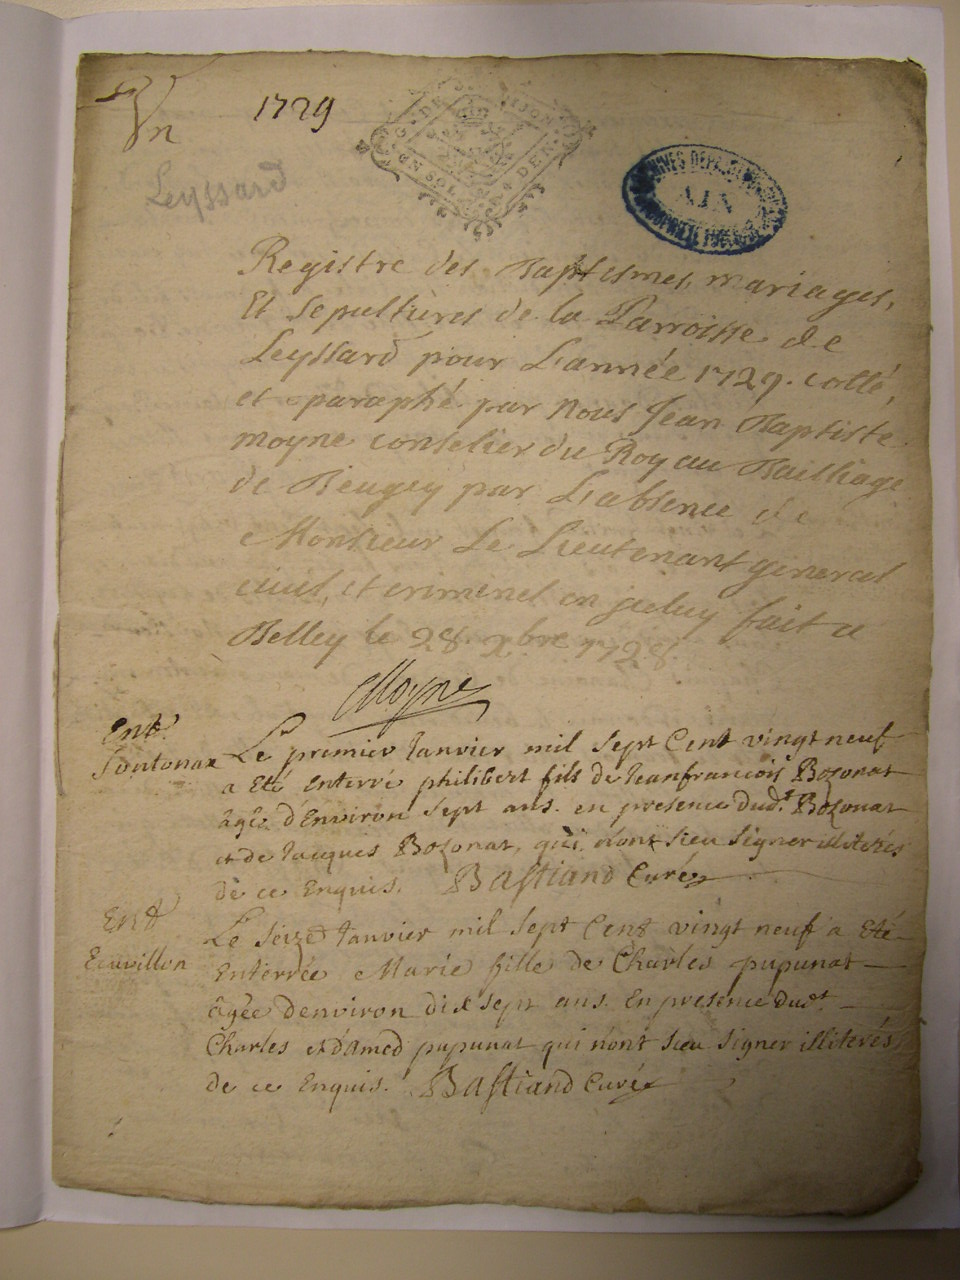 Vn
1729
Leyssard
ARCHIVES DEP
AIN
Registre des Baptismes, mariages,
Et sepultures de la Parroisse de
Leyssard pour L'année 1729. cotté,
et paraphé par nous Jean Baptiste
moyne conselier du Roy au Bailliage
de Beugey par L'absence de
Monsieur Le Lieutenant general
civil, et criminel en iceluy fait a
Belley le 28. xbre 1728
CMoyne
Ent.
Sontonax
Le premier Janvier mil sept Cent vingt neuf
a Eté Enterré philibert fils de Jeanfrancois Bozonat
âgé d'Environ sept ans. en presence dudt. Bozonat
et de Jacques Bozonat, qui n'ont sceu signer illiterés
de ce Enquis. Bastiand Curé
Entt
Ecuvillon
Le seize Janvier mil sept Cent vingt neuf a Eté
Enterrée Marie fille de Charles pupunat
âgée denviron dix sept ans. En presence dudt
Charles et d'Amed pupunat qui n'ont sceu signer illiterés
de ce Enquis. Bastiand Curé